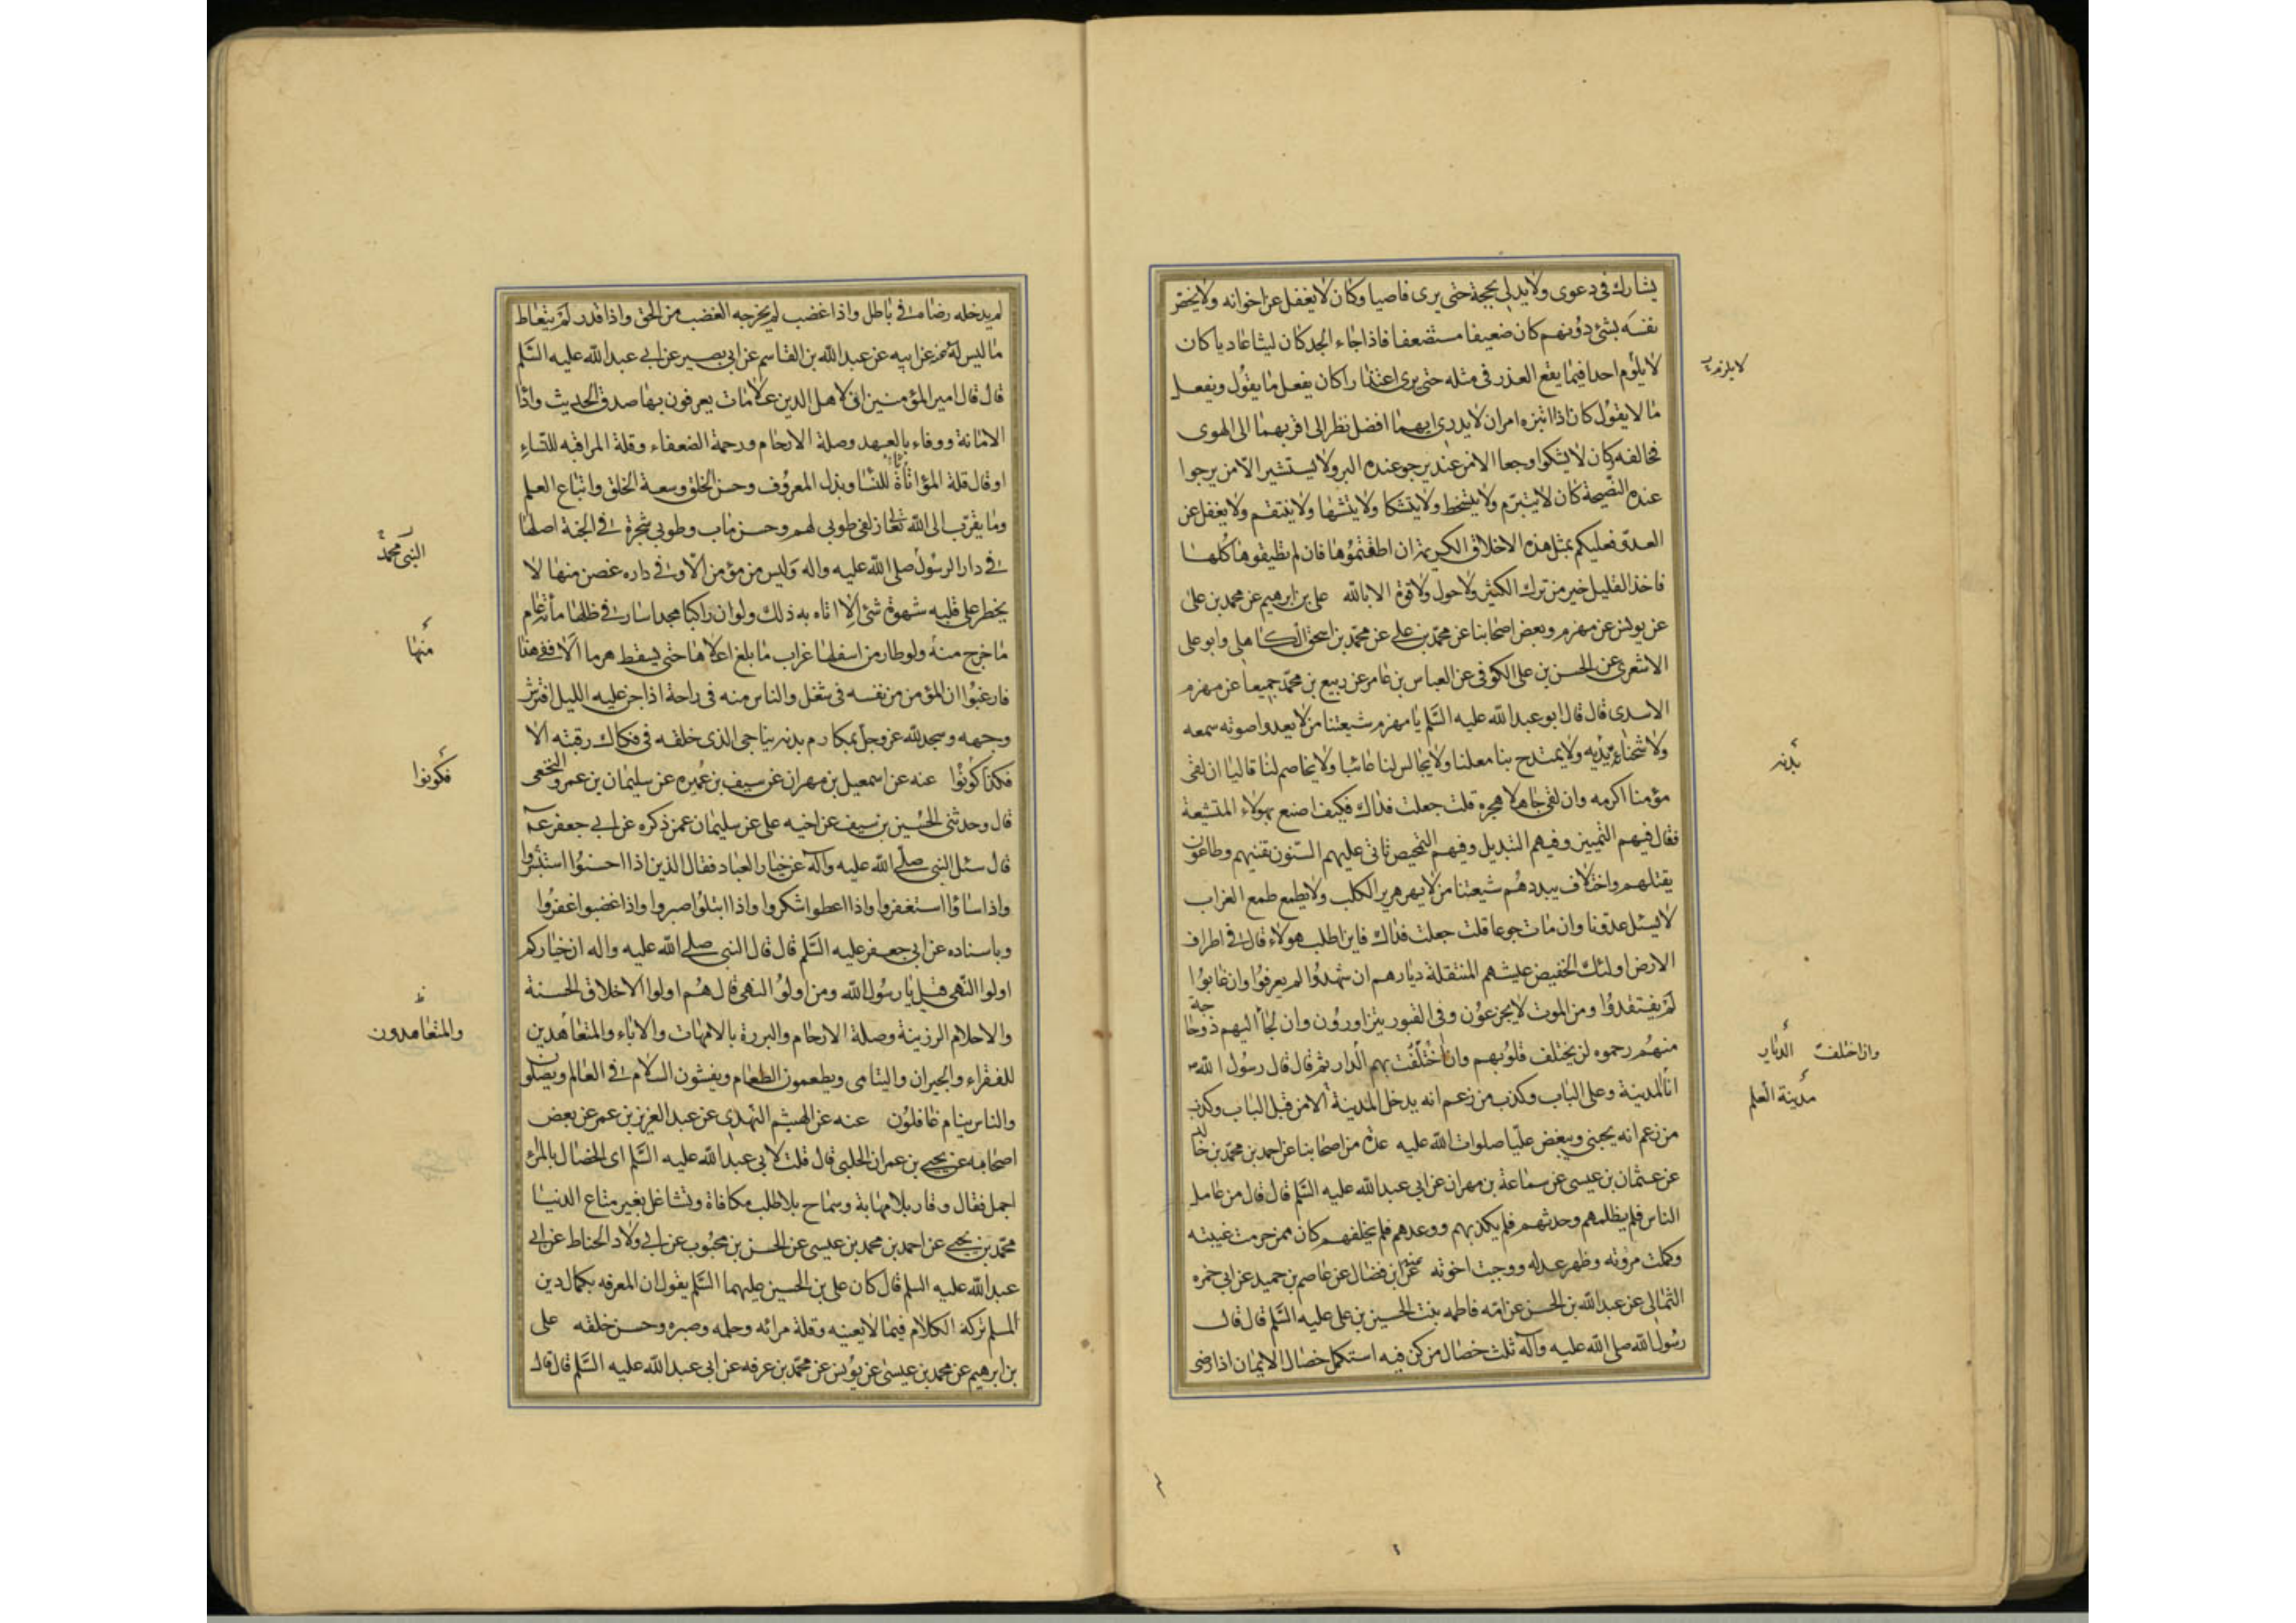 يشارك فى دعوى ولا يدلى بحجة حتى يرى قاصيا وكان لا يغفل عن اخوانه ولا يخص
نفسه بشئ دونهم كان ضعيفا مستضعفا فاذا جاء الجد كان ليثا عاديا كان
لا يلوم احدا فيما يقع العذر فى مثله حتى يرى اعتذارا كان يفعل ما يقول ويفعل
ما لا يقول كان اذا ابتزه امران لا يدرى ايهما افضل نظر الى اقربهما الى الهوى
فخالفه كان لا يشكوا وجعا الا من عند يرجو عنده البر ولا يستشير الا من يرجوا
عنده النصيحة كان لا يتبرم ولا يتسخط ولا يتشكا ولا يتشها ولا ينتقم ولا يغفل عن
العدو فعليكم بمثل هذه الاخلاق الكريمة ان اطقتموها فان لم تطيقوها كلها
فاخذ القليل خير من ترك الكثير ولا حول ولا قوة الا بالله على بن ابرهيم عن محمد بن على
عن يونس عن مهزم وبعض اصحابنا عن محمد بن على عن محمد بن اسحق الكاهلى وابو على
الاشعرى عن الحسن بن على الكوفى عن العباس بن عامر عن ربيع بن محمد جميعا عن مهزم
الاسدى قال قال ابو عبد الله عليه السلم يا مهزم شيعتنا من لا يعدوا صوته سمعه
ولا شحناءه يديه ولا يمتدح بنا معلنا ولا يجالس لنا عائبا ولا يخاصم لنا قاليا ان لقى
مؤمنا اكرمه وان لقى جاهلا هجره قلت جعلت فداك فكيف اصنع بهولاء المتشيعة
فقال فيهم التمييز وفيهم التبديل وفيهم التمحيص تاتى عليهم السنون تفنيهم وطاعون
يقتلهم واختلاف يبددهم شيعتنا من لا يهر هرير الكلب ولا يطمع طمع الغراب
لا يسئل عدونا وان مات جوعا قلت جعلت فداك فاين اطلب هولاء قال فى اطراف
الارض اولئك الخفيض عيشهم المنتقلة ديارهم ان شهدوا لم يعرفوا وان غابوا
لم يفتقدوا ومن الموت لا يجزعون وفى القبور يتزاورون وان لجأ اليهم ذو حاجة
منهم رحموه لن يختلف قلوبهم وان اختلفت بهم الدار ثم قال قال رسول الله ص
انا المدينة وعلى الباب وكذب من زعم انه يدخل المدينة الا من قبل الباب وكذب
من زعم انه يحبنى ويبغض عليا صلوات الله عليه عدة من اصحابنا عن احمد بن محمد بن خالد
عن عثمان بن عيسى عن سماعة بن مهران عن ابى عبد الله عليه السلم قال قال من عامل
الناس فلم يظلمهم وحدثهم فلم يكذبهم ووعدهم فلم يخلفهم كان ممن حرمت غيبته
وكملت مروته وظهر عدله ووجبت اخوته عنه عن ابن فضال عن عاصم بن حميد عن ابى حمزه
الثمالى عن عبد الله بن الحسن عن امه فاطمه بنت الحسين بن على عليه السلم قال قال
رسول الله صلى الله عليه وآله ثلث خصال من كن فيه استكمل خصال الايمان اذا رضى
بدنه
وان اختلفت الديار
مدينة العلم
لم يدخله رضاه فى باطل واذا غضب لم يخرجه الغضب من الحق واذا قدر لم يتعاط
ما ليس له عنه عن ابيه عن عبد الله بن القاسم عن ابى بصير عن ابى عبد الله عليه السلم
قال قال امير المؤمنين ان لاهل الدين علامات يعرفون بها صدق الحديث واداء
الامانة ووفاء بالعهد وصلة الارحام ورحمة الضعفاء وقلة المراقبه للنساء
او قال قلة المؤاتاة للنسا وبذل المعروف وحسن الخلق وسعة الخلق واتباع العلم
وما يقرب الى الله تعالى زلفى طوبى لهم وحسن مآب وطوبى شجرة فى الجنة اصلها
فى دار الرسول صلى الله عليه واله وليس من مؤمن الا وفى داره غصن منها لا
يخطر على قلبه شهوة شئ الا اتاه به ذلك ولو ان راكبا مجدا سار فى ظلها مأة عام
ما خرج منه ولو طار من اسفلها غراب ما بلغ اعلاها حتى يسقط هرما الا ففى هذا
فارغبوا ان المؤمن من نفسه فى شغل والناس منه فى راحة اذا جن عليه الليل افترش
وجهه وسجد لله عز وجل بمكارم بدنه يناجى الذى خلقه فى فكاك رقبته الا
فكذا كونوا عنه عن اسمعيل بن مهران عن سيف بن عميره عن سليمان بن عمرو النخعى
قال وحدثنى الحسين بن سيف عن اخيه على عن سليمان عمن ذكره عن ابى جعفر ع
قال سئل النبى صلى الله عليه وآله عن خيار العباد فقال الذين اذا احسنوا استبشروا
واذا ساؤا استغفروا واذا اعطوا شكروا واذا ابتلوا صبروا واذا غضبوا غفروا
وباسناده عن ابى جعفر عليه السلم قال قال النبى صلى الله عليه واله ان خياركم
اولوا النهى قيل يا رسول الله ومن اولوا النهى قال هم اولوا الاخلاق الحسنة
والاحلام الرزينة وصلة الارحام والبررة بالامهات والاباء والمتعاهدين
للفقراء والجيران واليتامى ويطعمون الطعام ويفشون السلام فى العالم ويصلون
والناس ينام غافلون عنه عن الهيثم النهدى عن عبد العزيز بن عمر عن بعض
اصحابه عن يحيى بن عمران الحلبى قال قلت لابى عبد الله عليه السلم اى الخصال بالمرء
اجمل فقال وقار بلا مهابة وسماح بلا طلب مكافاة وتشاغل بغير متاع الدنيا
محمد بن يحيى عن احمد بن محمد بن عيسى عن الحسن بن محبوب عن ابى ولاد الحناط عن ابى
عبد الله عليه السلم قال كان على بن الحسين عليهما السلم يقول ان المعرفه بكمال دين
المسلم تركه الكلام فيما لا يعنيه وقلة مرائه وحلمه وصبره وحسن خلقه على
بن ابرهيم عن محمد بن عيسى عن يونس عن محمد بن عرفه عن ابى عبد الله عليه السلم قال قال
النبى محمد
منها
فكونوا
والمتعاهدون